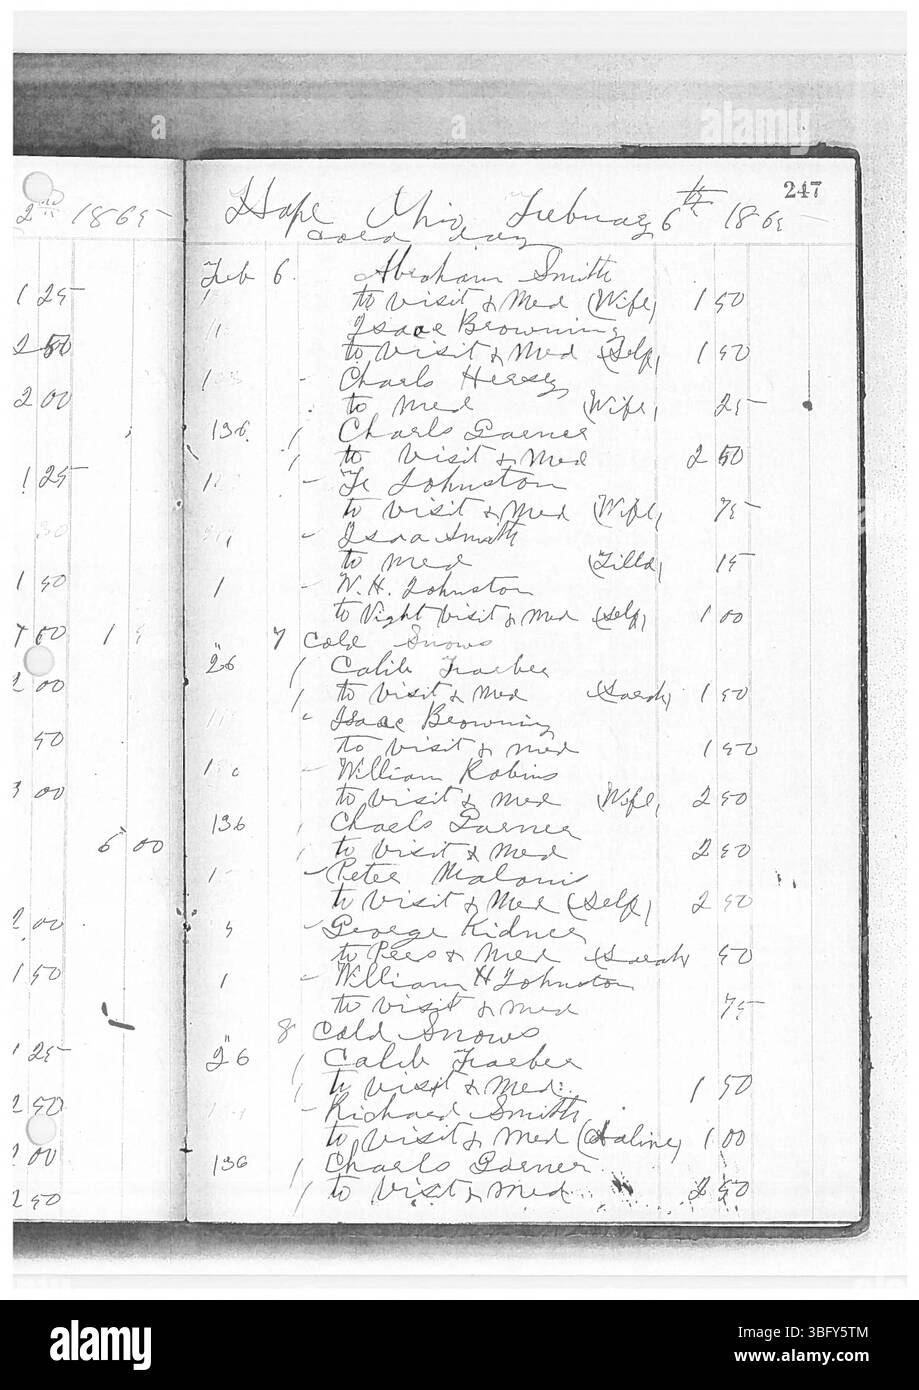 2nd 1865
1 25
2 50
2 00
1 25
30
1 50
1
2 00
50
3 00
6 00
2 00
1 50
1 25
2 50
2 00
2 50
247
Hope Ohio February 6th 1865
Cold day
Feb 6. Abraham Smith
to visit & Med (Wife) 1 50
1 Isaac Browning
to visit & Med (Self) 1 50
Charls Hersey
to Med (Wife) 25
136 Charls Garner
to visit & Med 2 50
Johnston
to visit & Med (Wife) 75
Isaa Smith
to Med (Tilld) 15
1 W. H. Johnston
to Night visit & Med (Self) 1 00
7 Cold Snows
"26 Calib Fraeber
to visit & Med (Sarah) 1 50
Isaac Browning
to visit & Med 1 50
William Robins
to visit & Med (Wife) 2 50
136 Charls Garner
to visit & Med 2 50
Peter Maloni
to visit & Med (Self) 2 50
George Kidner
to & Med (Sarah) 50
1 William H Johnston
to visit & Med 75
8 Cold Snows
2"6 Calib Fraeber
to visit & Med. 1 50
Richard Smith
to visit & Med 1 00
136 Charls Garner
to Visit & Med 2 50
alamy
a
a
Image ID: 3BFY5TM
www.alamy.com